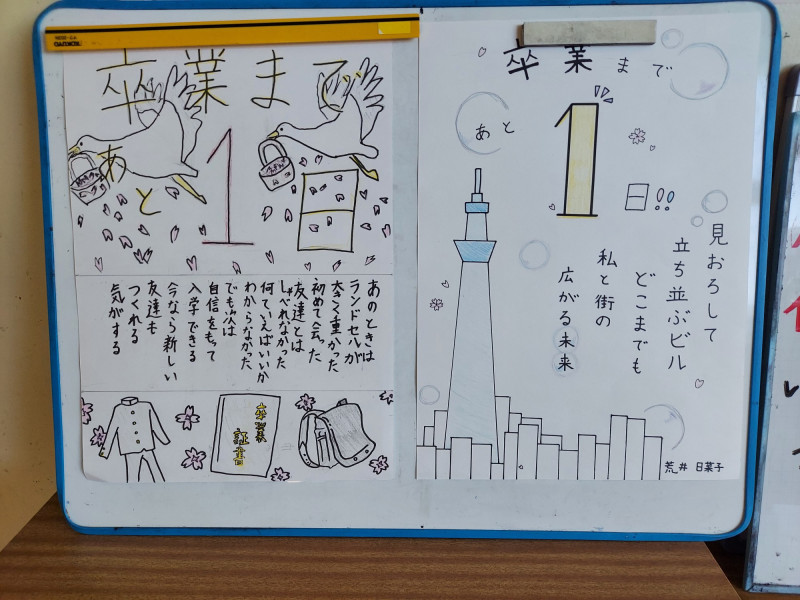 卒業まで
あと
1日
あのときは
ランドセルが
大きく重かった
初めて会った
友達とは
しゃべれなかった
何ていえばいいか
わからなかった
でも次は
自信をもって
入学できる
今なら新しい
友達も
つくれる
気がする
卒業
証書
卒業まで
あと
1日!!
見おろして
立ち並ぶビル
どこまでも
私と街の
広がる未来
荒井 日菜子